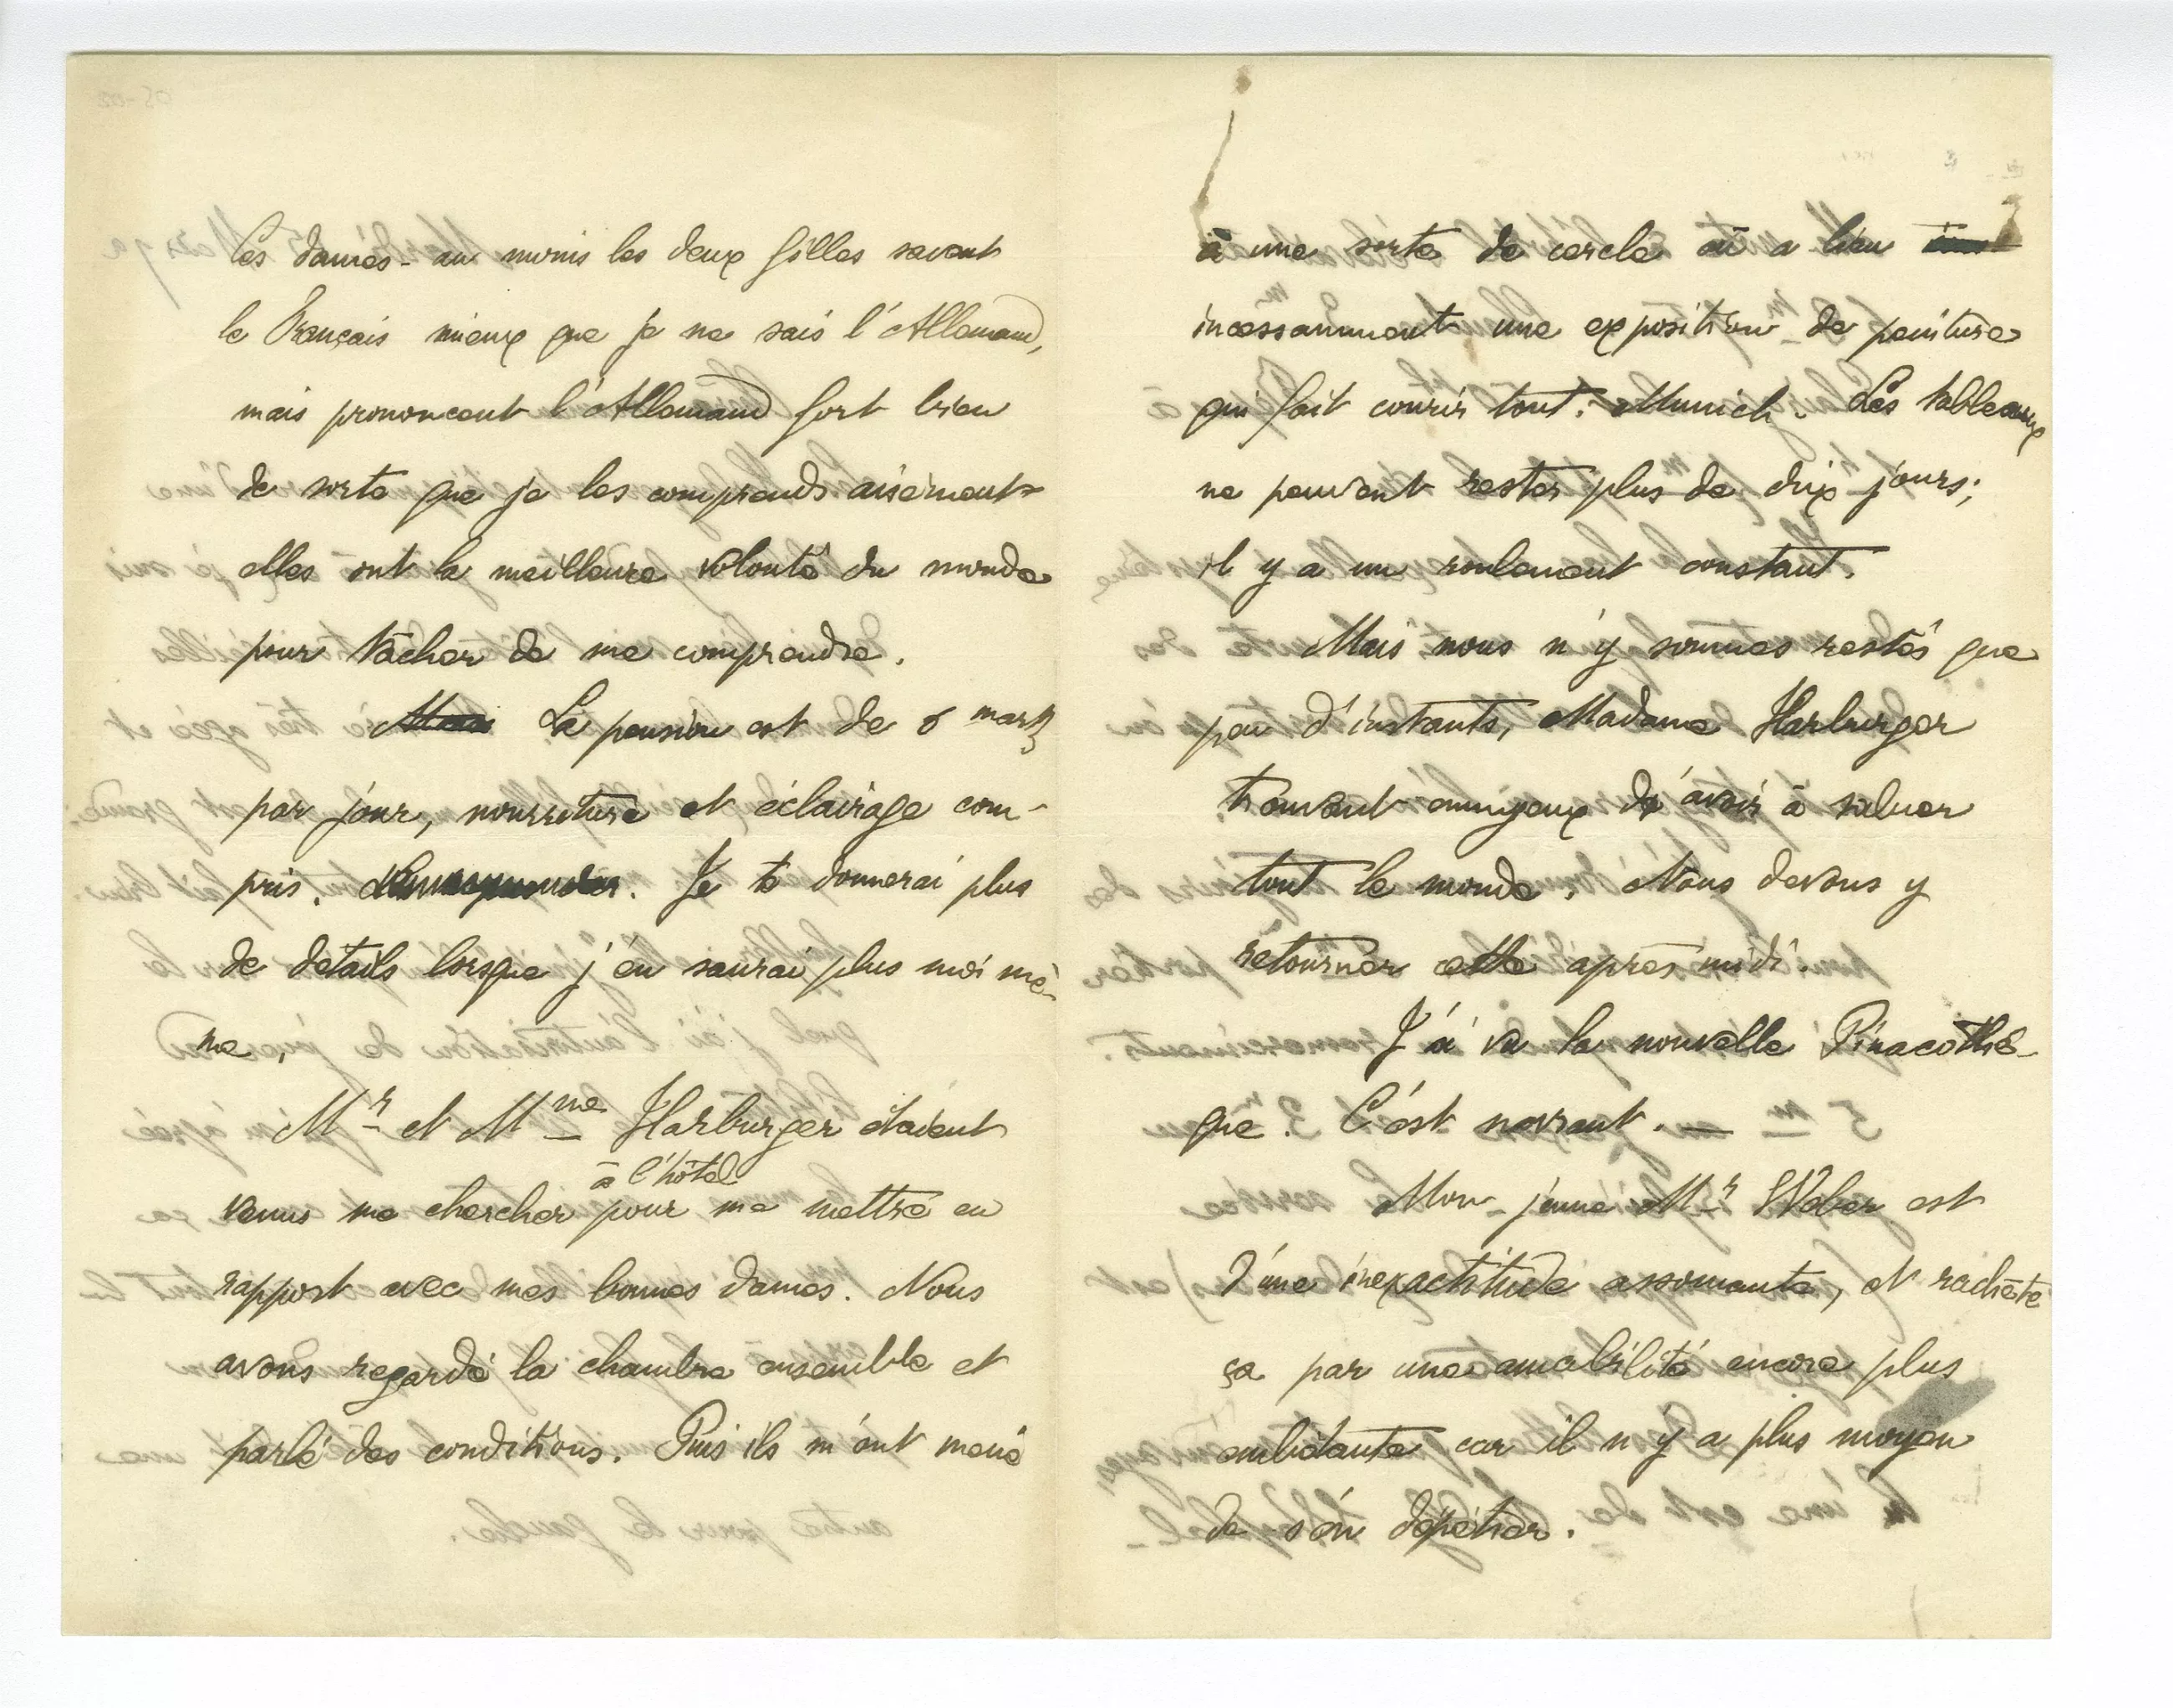 Ces dames - au moins les deux filles savent
le Français mieux que je ne sais l'Allemand,
mais prononcent l'Allemand fort bien
de sorte que je les comprends aisément
elles ont la meilleure volonté du monde
pour tâcher de me comprendre.
Mais La pension est de 6 marks
par jour, nourriture et éclairage com-
pris. Je te donnerai plus
de détails lorsque j'en saurai plus moi mê-
me,
Mr et Mme Harburger étaient
à l'hôtel
venus me chercher pour me mettre en
rapport avec mes bonnes dames. Nous
avons regardé la chambre ensemble et
parlé des conditions. Puis ils m'ont mené
à une sorte de cercle où a lieu
incessamment une exposition de peinture
qui fait courir tout Munich. Les tableaux
ne peuvent rester plus de dix jours;
il y a un roulement constant.
Mais nous n'y sommes restés que
peu d'instants, Madame Harburger
trouvant ennuyeux d'avoir à saluer
tout le monde. Nous devons y
retourner cette après midi.
J'ai vu la nouvelle Pinacothè-
que. C'est navrant. —
Mon jeune Mr Weber est
d'une inexactitude assomante, et rachète
ça par une amabilité encore plus
embêtante car il n'y a plus moyen
de s'en dépêtrer.